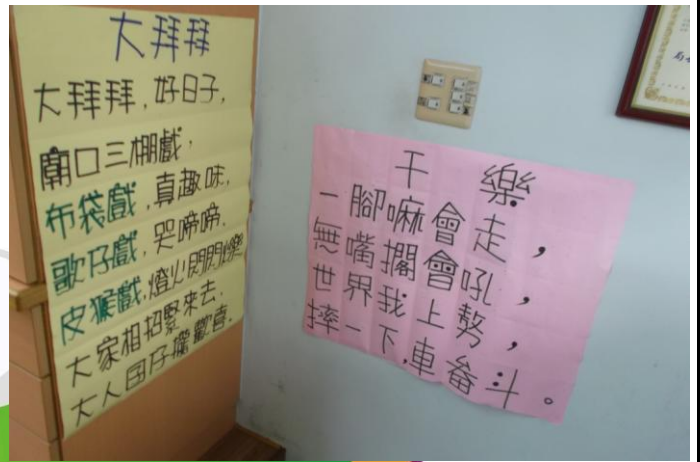 大拜拜
大拜拜，好日子，
廟口三棚戲，
布袋戲，真趣味，
歌仔戲，哭啼啼，
皮猴戲，燈火閃閃爍
大家相招緊來去，
大人囝仔攏歡喜。
干樂
一腳嘛會走，
無嘴擱會吼，
世界我上勢，
摔一下，車畚斗。